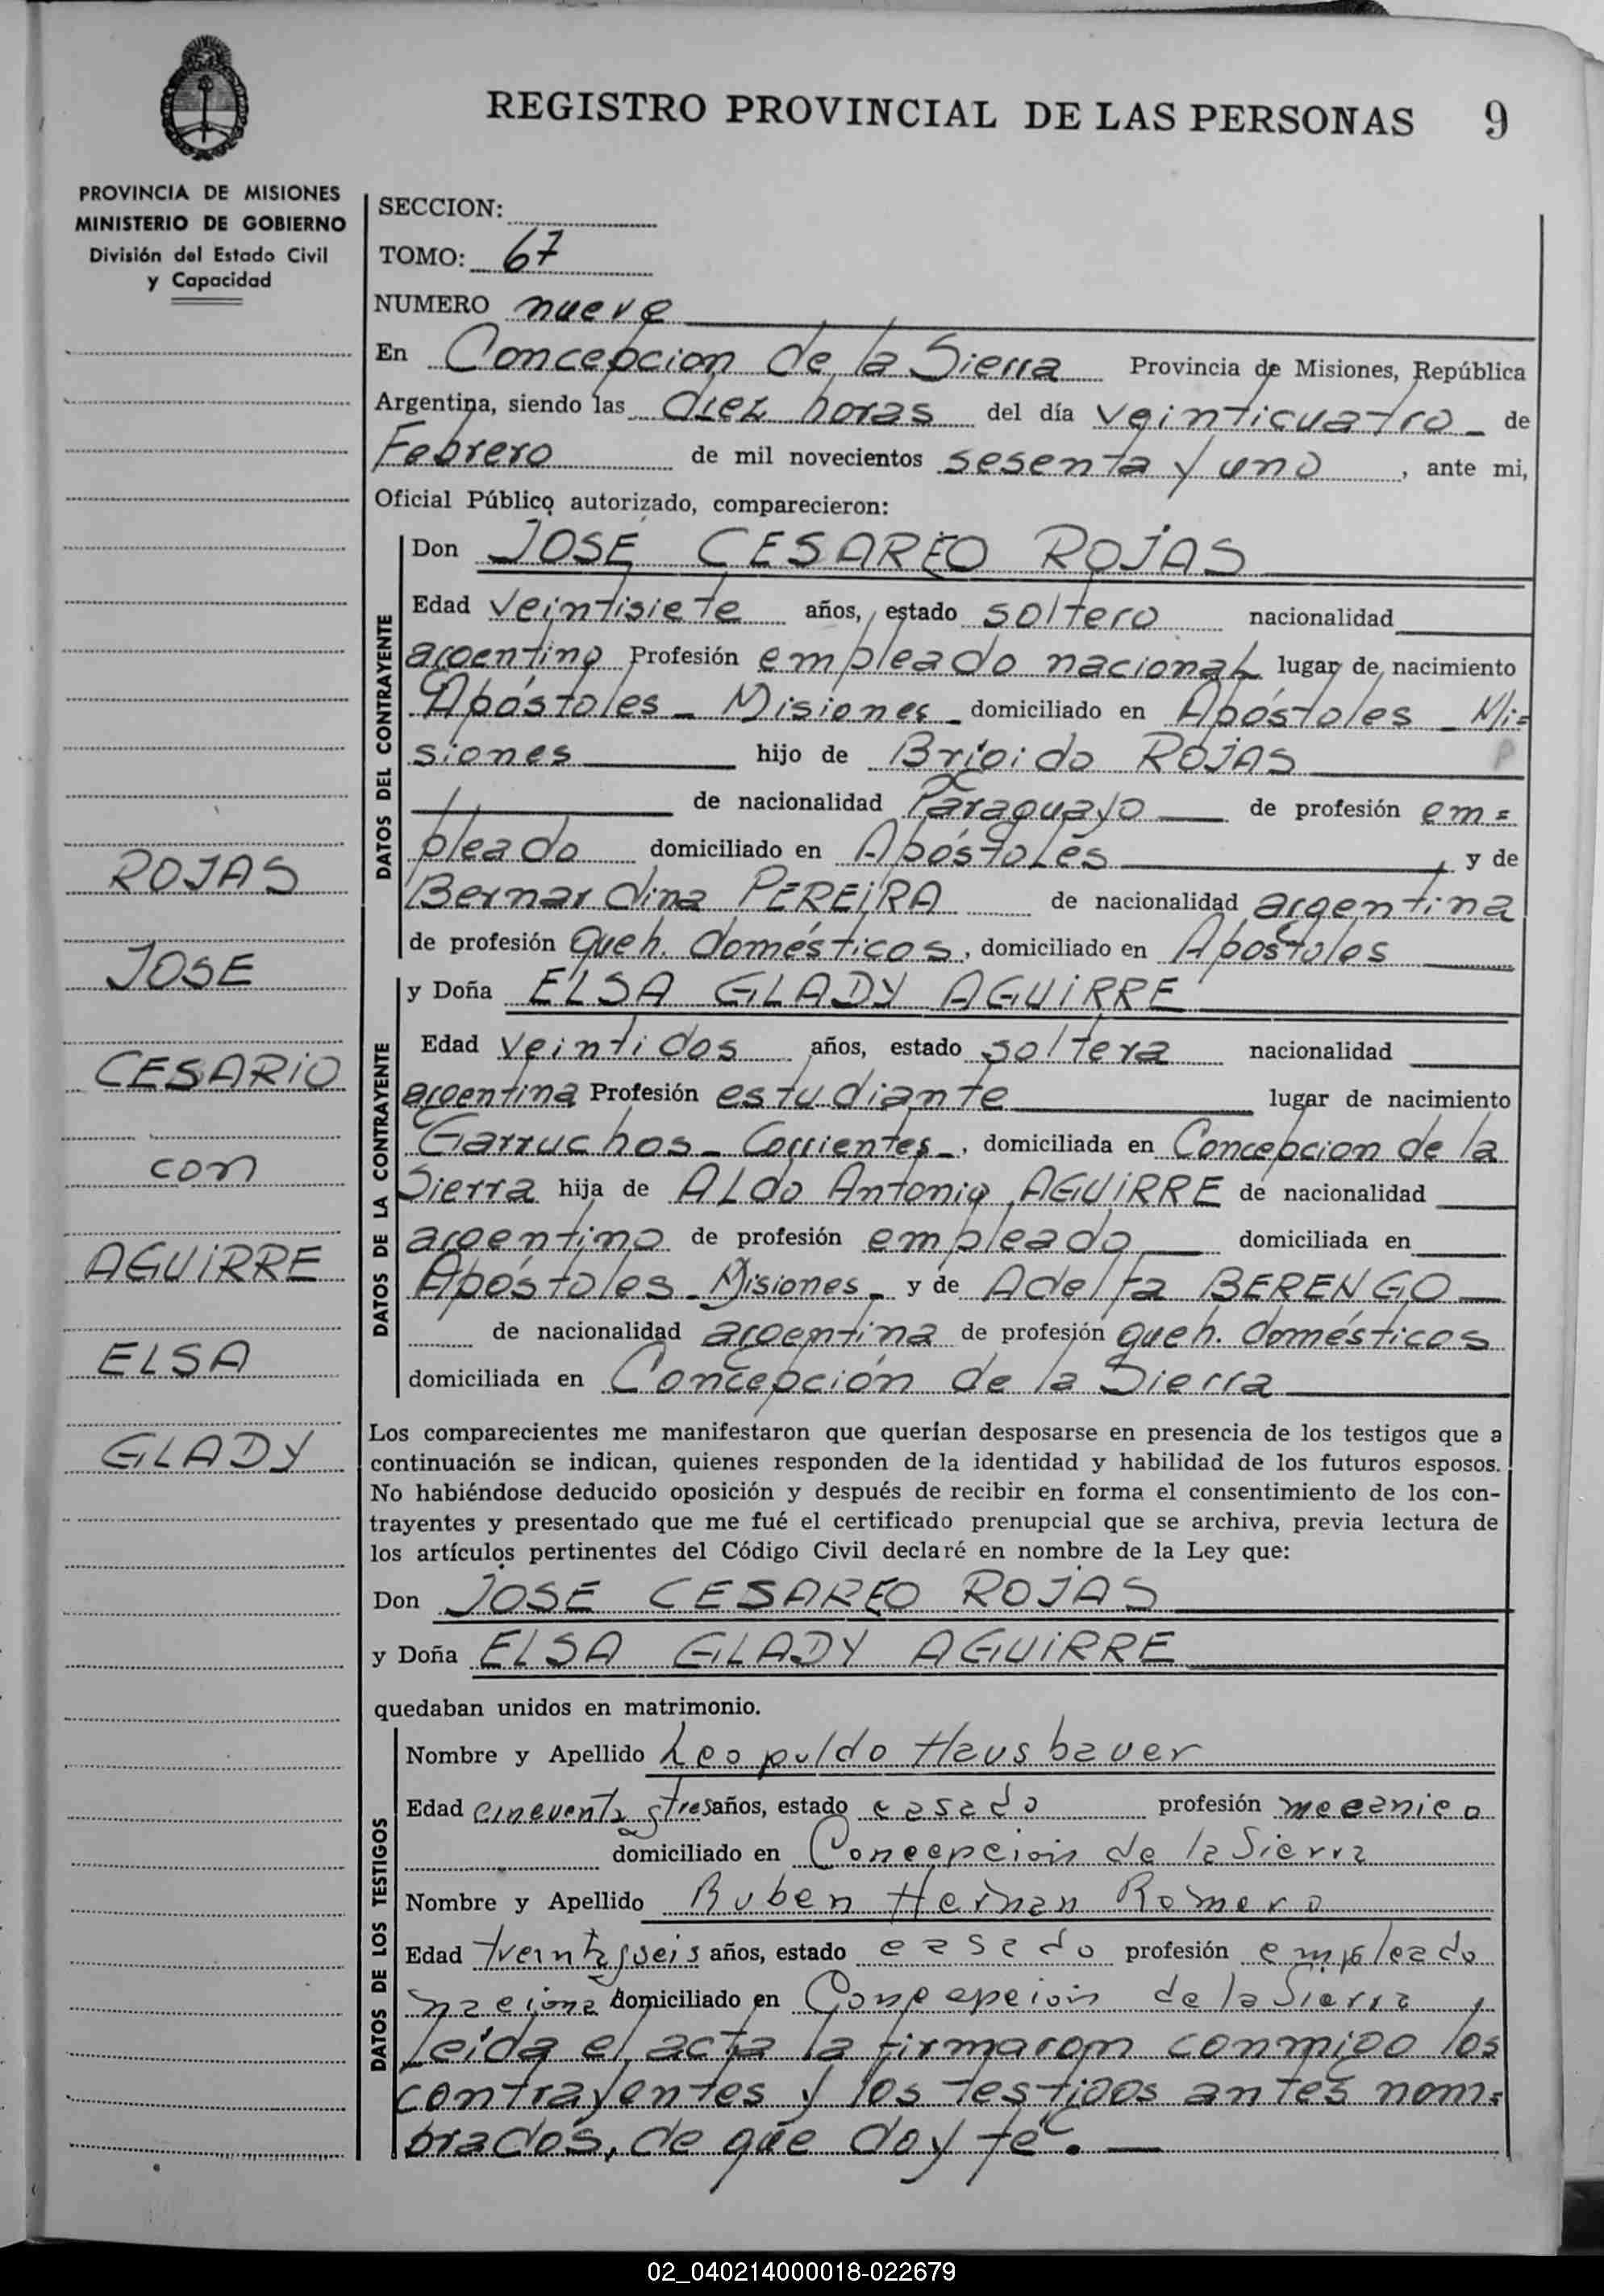 REGISTRO PROVINCIAL DE LAS PERSONAS 9
PROVINCIA DE MISIONES
MINISTERIO DE GOBIERNO
División del Estado Civil
y Capacidad
ROJAS
JOSE
CESARIO
con
AGUIRRE
ELSA
GLADY
SECCION:
TOMO: 67
NUMERO nueve
En Concepcion de la Sierra Provincia de Misiones, República
Argentina, siendo las diez horas del día veinticuatro _ de
Febrero de mil novecientos sesenta y uno , ante mi,
Oficial Público autorizado, comparecieron:
DATOS DEL CONTRAYENTE
Don JOSE CESAREO ROJAS
Edad veintisiete años, estado soltero nacionalidad
argentino Profesión empleado nacional lugar de nacimiento
Apóstoles _ Misiones _ domiciliado en Apóstoles _ Mi=
siones hijo de Brígido ROJAS
de nacionalidad Paraguayo de profesión em=
pleado domiciliado en Apóstoles , y de
Bernardina PEREIRA de nacionalidad argentina
de profesión queh. domésticos, domiciliado en Apóstoles
DATOS DE LA CONTRAYENTE
y Doña ELSA GLADY AGUIRRE
Edad veintidos años, estado soltera nacionalidad
argentina Profesión estudiante lugar de nacimiento
Garruchos _ Corrientes _, domiciliada en Concepcion de la
Sierra hija de Aldo Antonio AGUIRRE de nacionalidad
argentino de profesión empleado domiciliada en
Apóstoles _ Misiones _ y de Adelfa BERENGO
de nacionalidad argentina de profesión queh. domésticos
domiciliada en Concepción de la Sierra
Los comparecientes me manifestaron que querían desposarse en presencia de los testigos que a
continuación se indican, quienes responden de la identidad y habilidad de los futuros esposos.
No habiéndose deducido oposición y después de recibir en forma el consentimiento de los con-
trayentes y presentado que me fué el certificado prenupcial que se archiva, previa lectura de
los artículos pertinentes del Código Civil declaré en nombre de la Ley que:
Don JOSE CESAREO ROJAS
y Doña ELSA GLADY AGUIRRE
quedaban unidos en matrimonio.
DATOS DE LOS TESTIGOS
Nombre y Apellido Leopoldo Hausbauer
Edad cincuenta y tres años, estado casado profesión mecanico
domiciliado en Concepcion de la Sierra
Nombre y Apellido Ruben Hernan Romero
Edad treinta y seis años, estado casado profesión empleado
naciona domiciliado en Concepcion de la Sierra ,
leída el acta la firmaron conmigo los
contrayentes y los testigos antes nom=
brados, de que doy fe.
02_040214000018-022679